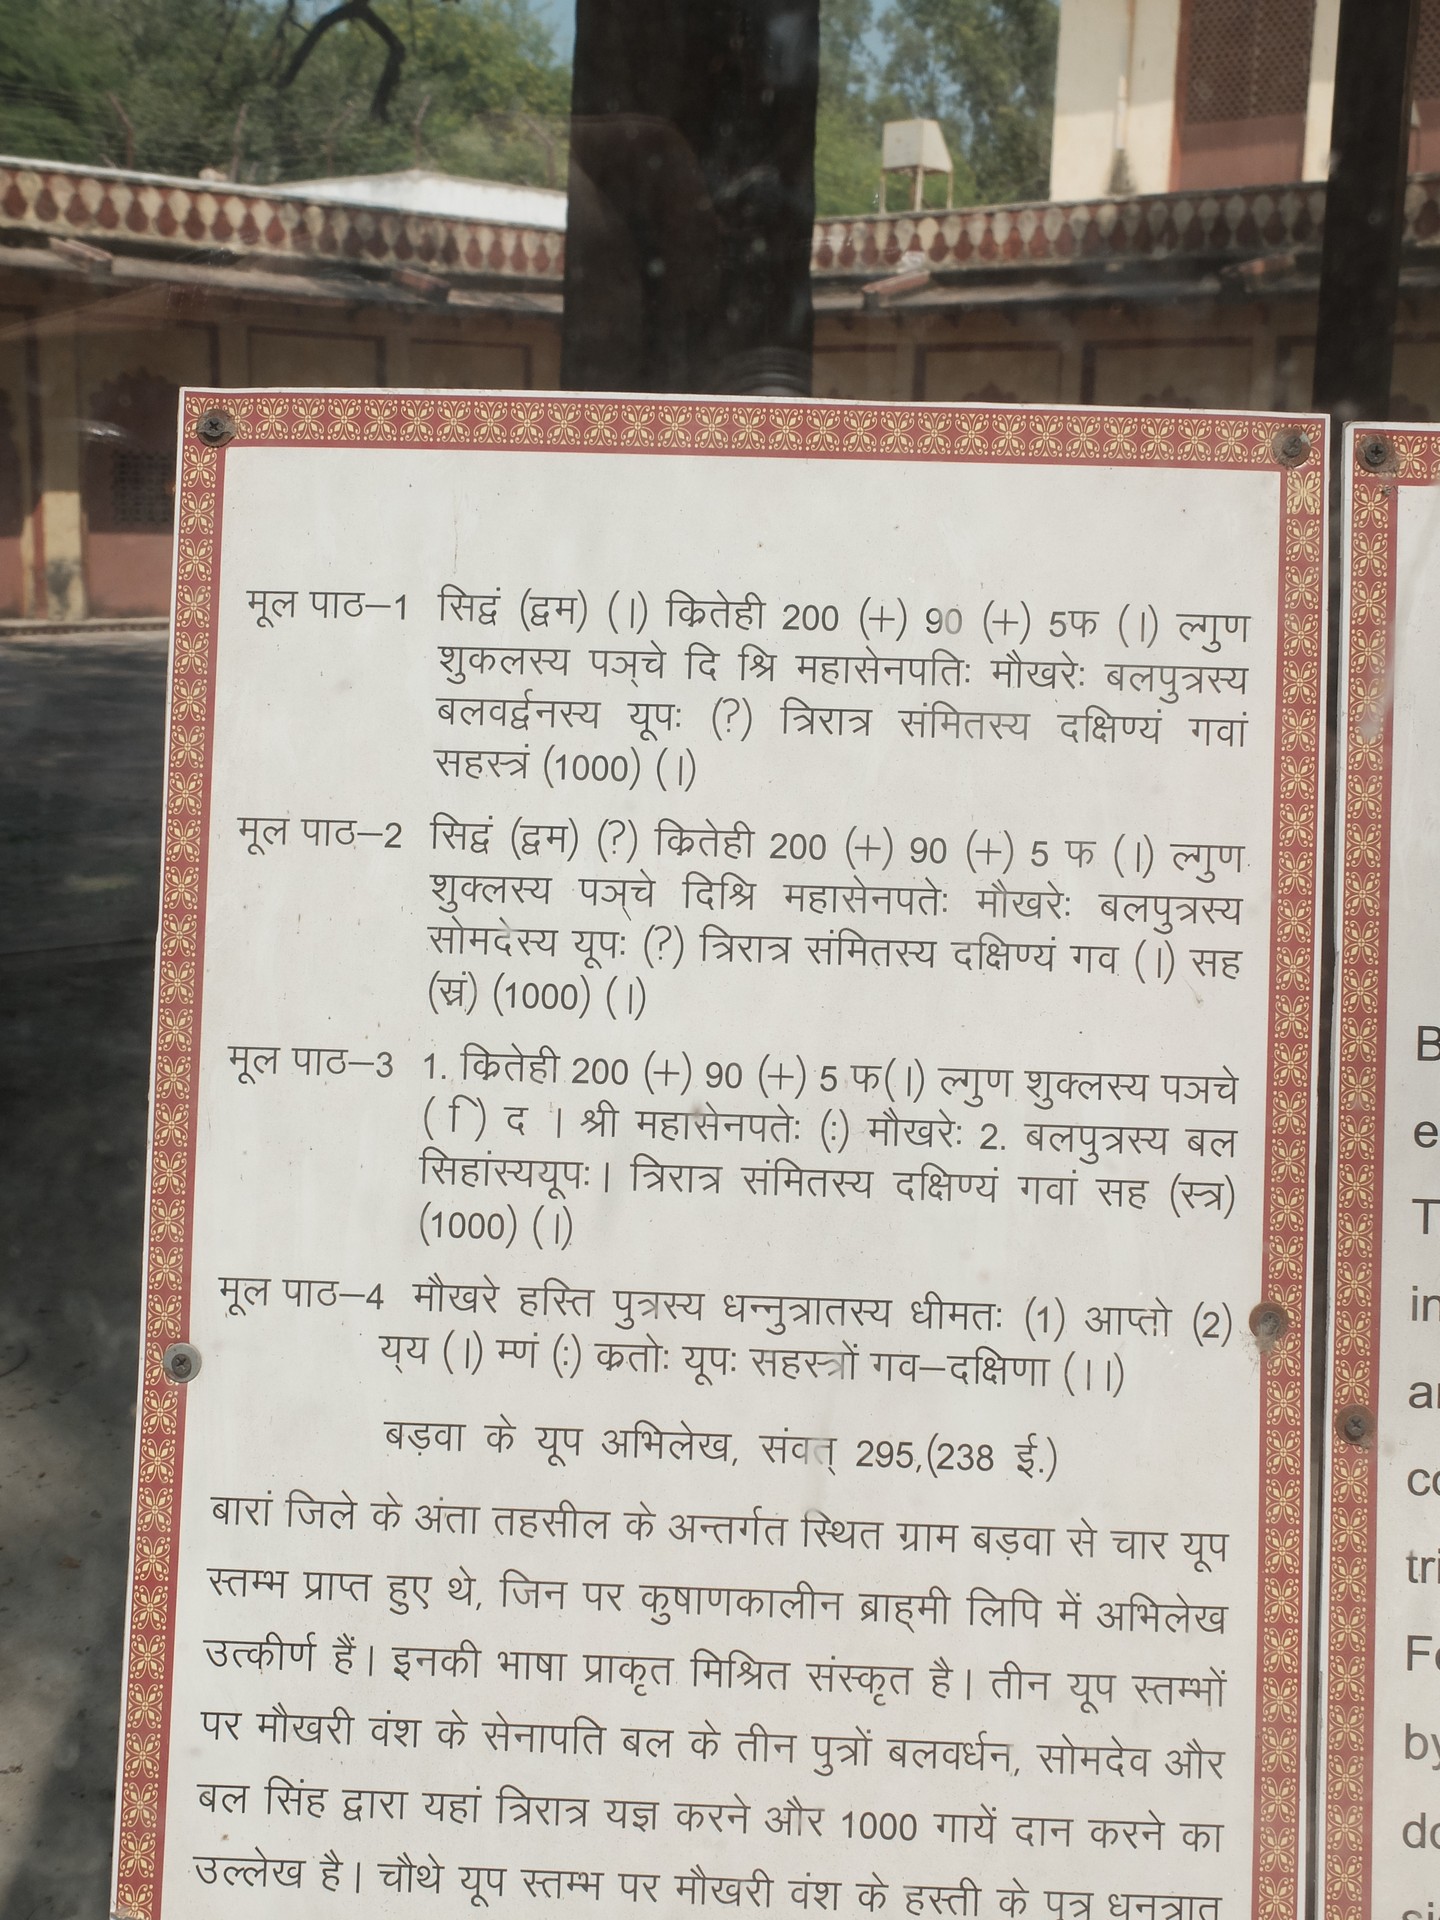 मूल पाठ–1 सिद्वं (द्वम) (।) क्रितेही 200 (+) 90 (+) 5फ (।) ल्गुण
शुकलस्य पञ्चे दि श्रि महासेनपतिः मौखरेः बलपुत्रस्य
बलवर्द्वनस्य यूपः (?) त्रिरात्र संमितस्य दक्षिण्यं गवां
सहस्त्रं (1000) (।)
मूल पाठ–2 सिद्वं (द्वम) (?) क्रितेही 200 (+) 90 (+) 5 फ (।) ल्गुण
शुक्लस्य पञ्चे दिश्रि महासेनपतेः मौखरेः बलपुत्रस्य
सोमदेस्य यूपः (?) त्रिरात्र संमितस्य दक्षिण्यं गव (।) सह
(स्रं) (1000) (।)
मूल पाठ–3 1. क्रितेही 200 (+) 90 (+) 5 फ(।) ल्गुण शुक्लस्य पञचे
(ि) द । श्री महासेनपतेः (:) मौखरेः 2. बलपुत्रस्य बल
सिहांस्ययूपः। त्रिरात्र संमितस्य दक्षिण्यं गवां सह (स्त्र)
(1000) (।)
मूल पाठ–4 मौखरे हस्ति पुत्रस्य धन्नुत्रातस्य धीमतः (1) आप्तो (2)
य्य (।) म्णं (:) क्रतोः यूपः सहस्त्रों गव–दक्षिणा (।।)
बड़वा के यूप अभिलेख, संवत् 295,(238 ई.)
बारां जिले के अंता तहसील के अन्तर्गत स्थित ग्राम बड़वा से चार यूप
स्तम्भ प्राप्त हुए थे, जिन पर कुषाणकालीन ब्राह्मी लिपि में अभिलेख
उत्कीर्ण हैं। इनकी भाषा प्राकृत मिश्रित संस्कृत है। तीन यूप स्तम्भों
पर मौखरी वंश के सेनापति बल के तीन पुत्रों बलवर्धन, सोमदेव और
बल सिंह द्वारा यहां त्रिरात्र यज्ञ करने और 1000 गायें दान करने का
उल्लेख है। चौथे यूप स्तम्भ पर मौखरी वंश के हस्ती के पुत्र धनत्रात